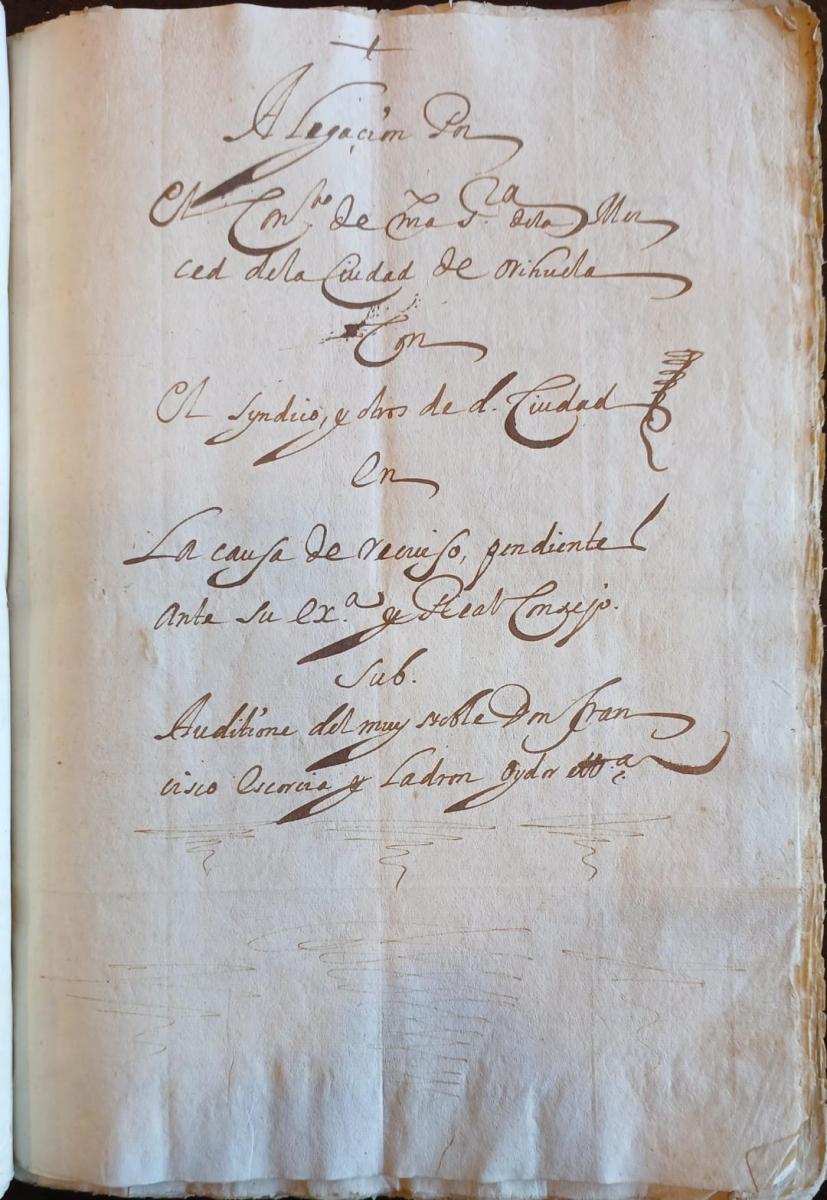 +
Alegación Por
El Con.to de nra S.ra dela Mer
ced dela Ciudad de orihuela
Con
El syndico, y otros de d. Ciudad
en
La causa de recurso, pendiente
Ante su ex.a y Real Consejo.
sub.
Auditione del muy Noble Don Fran
cisco Escorcia y Ladron oydor ett.a